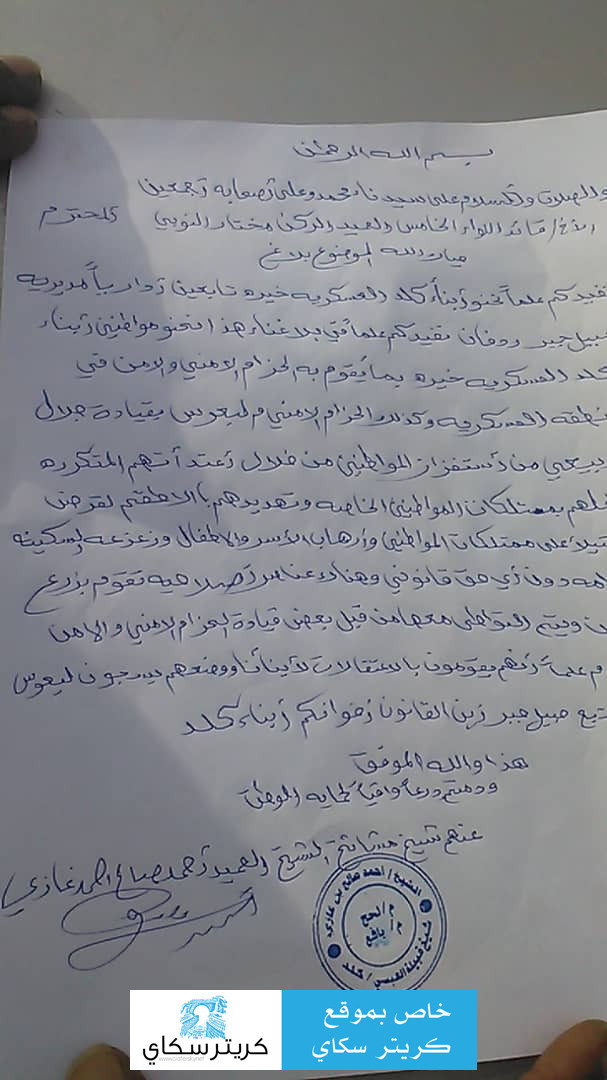 بسم الله الرحمن
والصلاة والسلام على سيدنا محمد وعلى أصحابه أجمعين
الأخ/ قائد اللواء الخامس والعميد الركن مختار النوبي المحترم
حياه الله الموضوع بلاغ
نفيدكم علماً نحنو أبناء كلد العسكريه خيره تابعين أدارياً مديريه
حبيل جبر ردفان نفيدكم علماً في بلاغنا هذا نحنو مواطنين أبناء
كلد العسكريه خيره بما يقوم به الحزام الامني والامن في
منطقه العسكريه وكذلك الحزام الامني م لبعوس بقيادة جلال
من أستفزاز المواطنين من خلال أعتدأتهم المتكرره
بممتلكات المواطنين الخاصه وتهديدهم بالاطقم لغرض
على ممتلكات المواطنين وأرهاب الأسر والاطفال وزعزعه السكينه
دون أي حق قانوني وهناك عناصر تقوم بزرع
ويتم التواطى معها من قبل بعض قيادة الحزام الامني والامن
علماً أنهم يقومون بالاعتقالات لأبنأنا ووضعهم بسجون لبعوس
جبر أين القانون أخوانكم أبناء كلد
هذا والله الموفق
ودمتم درعاً واقياً لحمايه الوطن
عنهم شيخ مشائخ الشيخ العميد أحمد صالح احمد غازي
الشيخ / أحمد صالح بن غازي
م/ لحج
م/ يافع
شيخ قبيلة العبسي / كلد
خاص بموقع
كريتر سكاي
كريتر سكاي